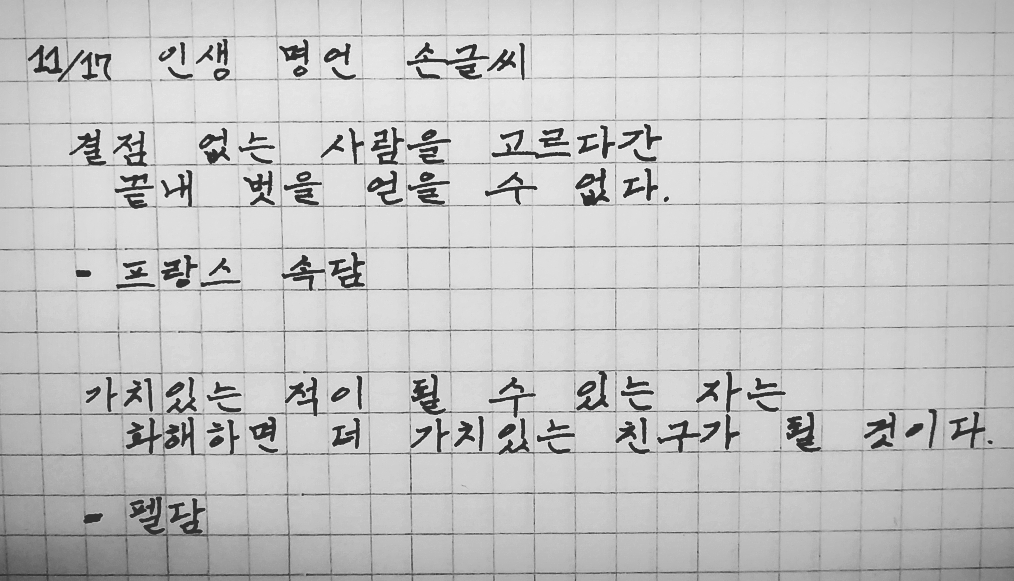 11/17 인생 명언 손글씨
결점 없는 사람을 고르다간
끝내 벗을 얻을 수 없다.
- 프랑스 속담
가치있는 적이 될 수 있는 자는
화해하면 더 가치있는 친구가 될 것이다.
- 펠담